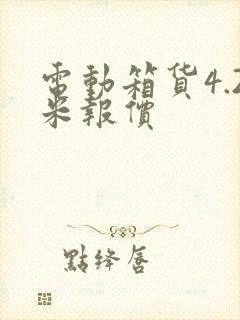 電動箱货4.2
米報價
點绛唇